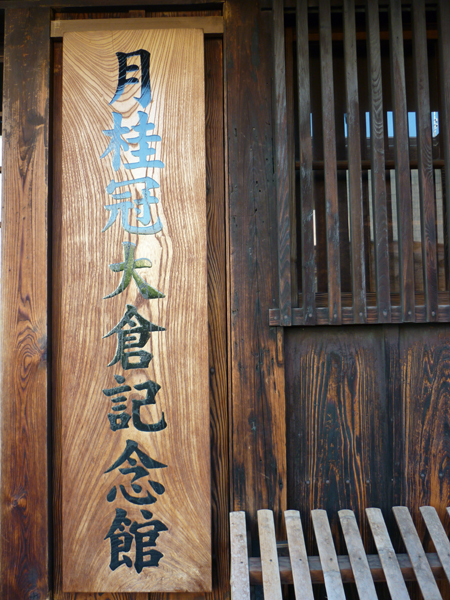 月桂冠大倉記念館